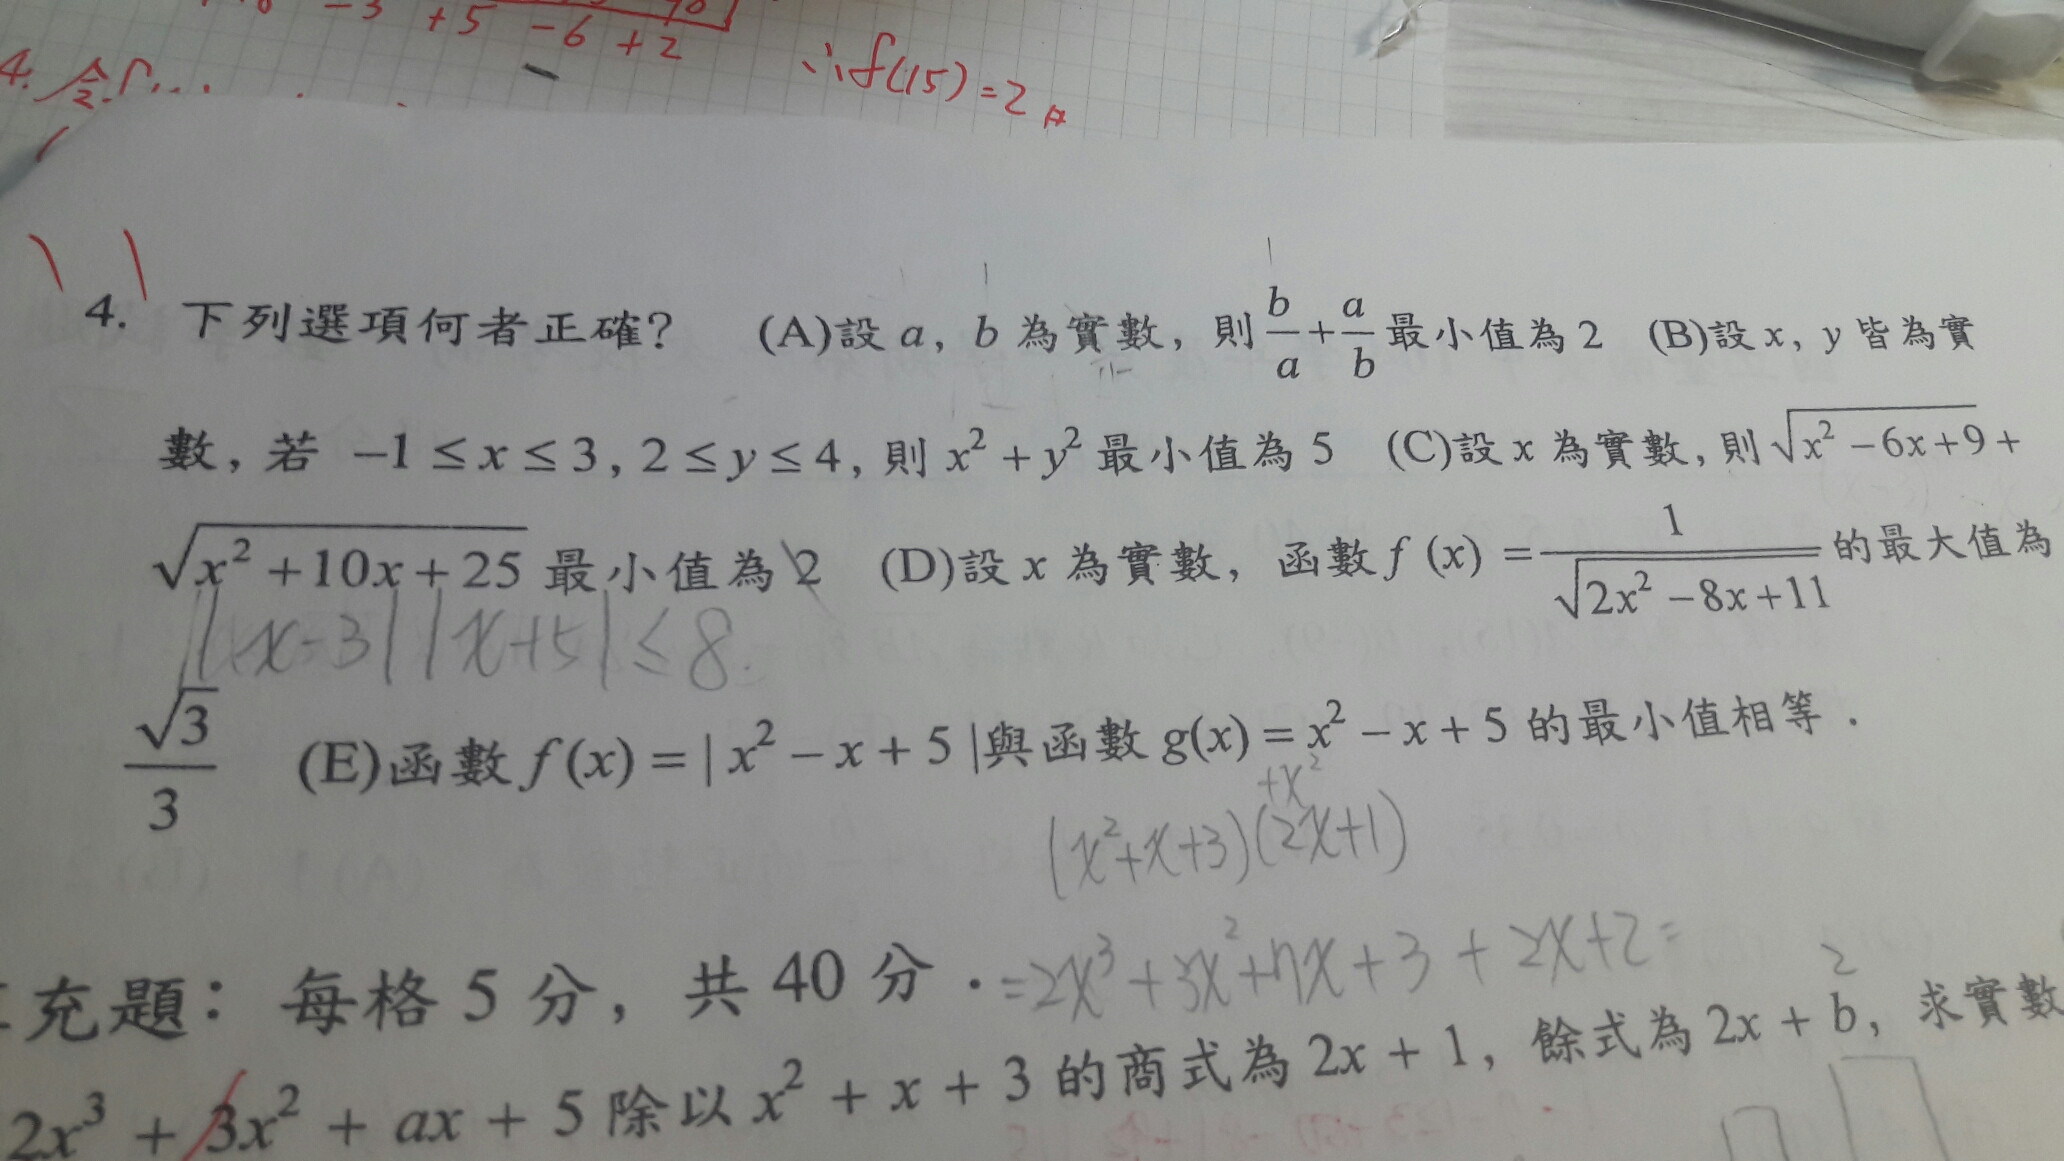 -3 +5 -6 +2
∴f(15)=2
4. 令
4. 下列選項何者正確? (A)設 a, b 為實數, 則 b/a + a/b 最小值為 2 (B)設 x, y 皆為實
數, 若 −1 ≤ x ≤ 3, 2 ≤ y ≤ 4, 則 x² + y² 最小值為 5 (C)設 x 為實數, 則 √(x² − 6x + 9) +
√(x² + 10x + 25) 最小值為 2 (D)設 x 為實數, 函數 f (x) = 1/√(2x² − 8x + 11) 的最大值為
|x-3| |x+5| ≤ 8.
√3/3 (E)函數 f(x) = | x² − x + 5 |與函數 g(x) = x² − x + 5 的最小值相等.
+x²
(x²+x+3)(2x+1)
充題: 每格 5 分, 共 40 分.
=2x³+3x²+7x+3+2x+2=
2
2x³ + 3x² + ax + 5 除以 x² + x + 3 的商式為 2x + 1, 餘式為 2x + b, 求實數